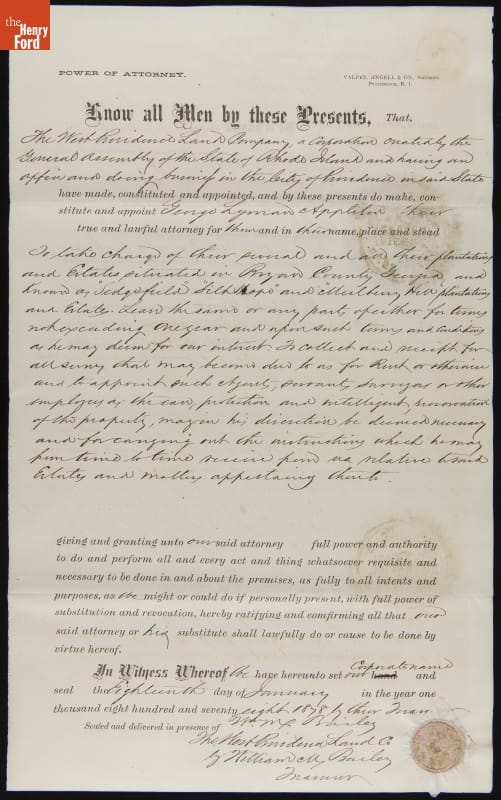 the
Henry
Ford
POWER OF ATTORNEY.
VALPEY, ANGELL & CO., Stationers
Providence, R. I.
Know all Men by these Presents, That,
The West Providence Land Company, a Corporation created by the
General Assembly of the State of Rhode Island and having an
office and doing business in the City of Providence in said State
have made, constituted and appointed, and by these presents do make, con-
stitute and appoint George Lyman Appleton their
true and lawful attorney for them and in their name, place and stead
To take charge of their several and all their plantations
and Estates situated in Bryan County Georgia and
Known as, "Sedgefield" and "Mulberry Hill" plantations
and Estate. Lease the same or any part of either for terms
not exceeding one year and upon such terms and conditions
as he may deem for our interest. To collect and receipt for
all sums that may become due to us for Rent or otherwise
and to appoint such Agents, servants, Surveyors or other
employees as the care, protection and intelligent renovation
of the property, may in his discretion be deemed necessary
and for carrying out the instructions which he may
from time to time receive from us, relative to said
Estates and matters appertaining thereto.
giving and granting unto our said attorney full power and authority
to do and perform all and every act and thing whatsoever requisite and
necessary to be done in and about the premises, as fully to all intents and
purposes, as we might or could do if personally present, with full power of
substitution and revocation, hereby ratifying and confirming all that our
said attorney or his substitute shall lawfully do or cause to be done by
virtue hereof.
In Witness Whereof We have hereunto set our hand Corporate name and
seal the Eighteenth day of January in the year one
thousand eight hundred and seventy eight 1878 by their
Wm M Bailey
Sealed and delivered in presence of
The West Providence Land Co
by William M Bailey